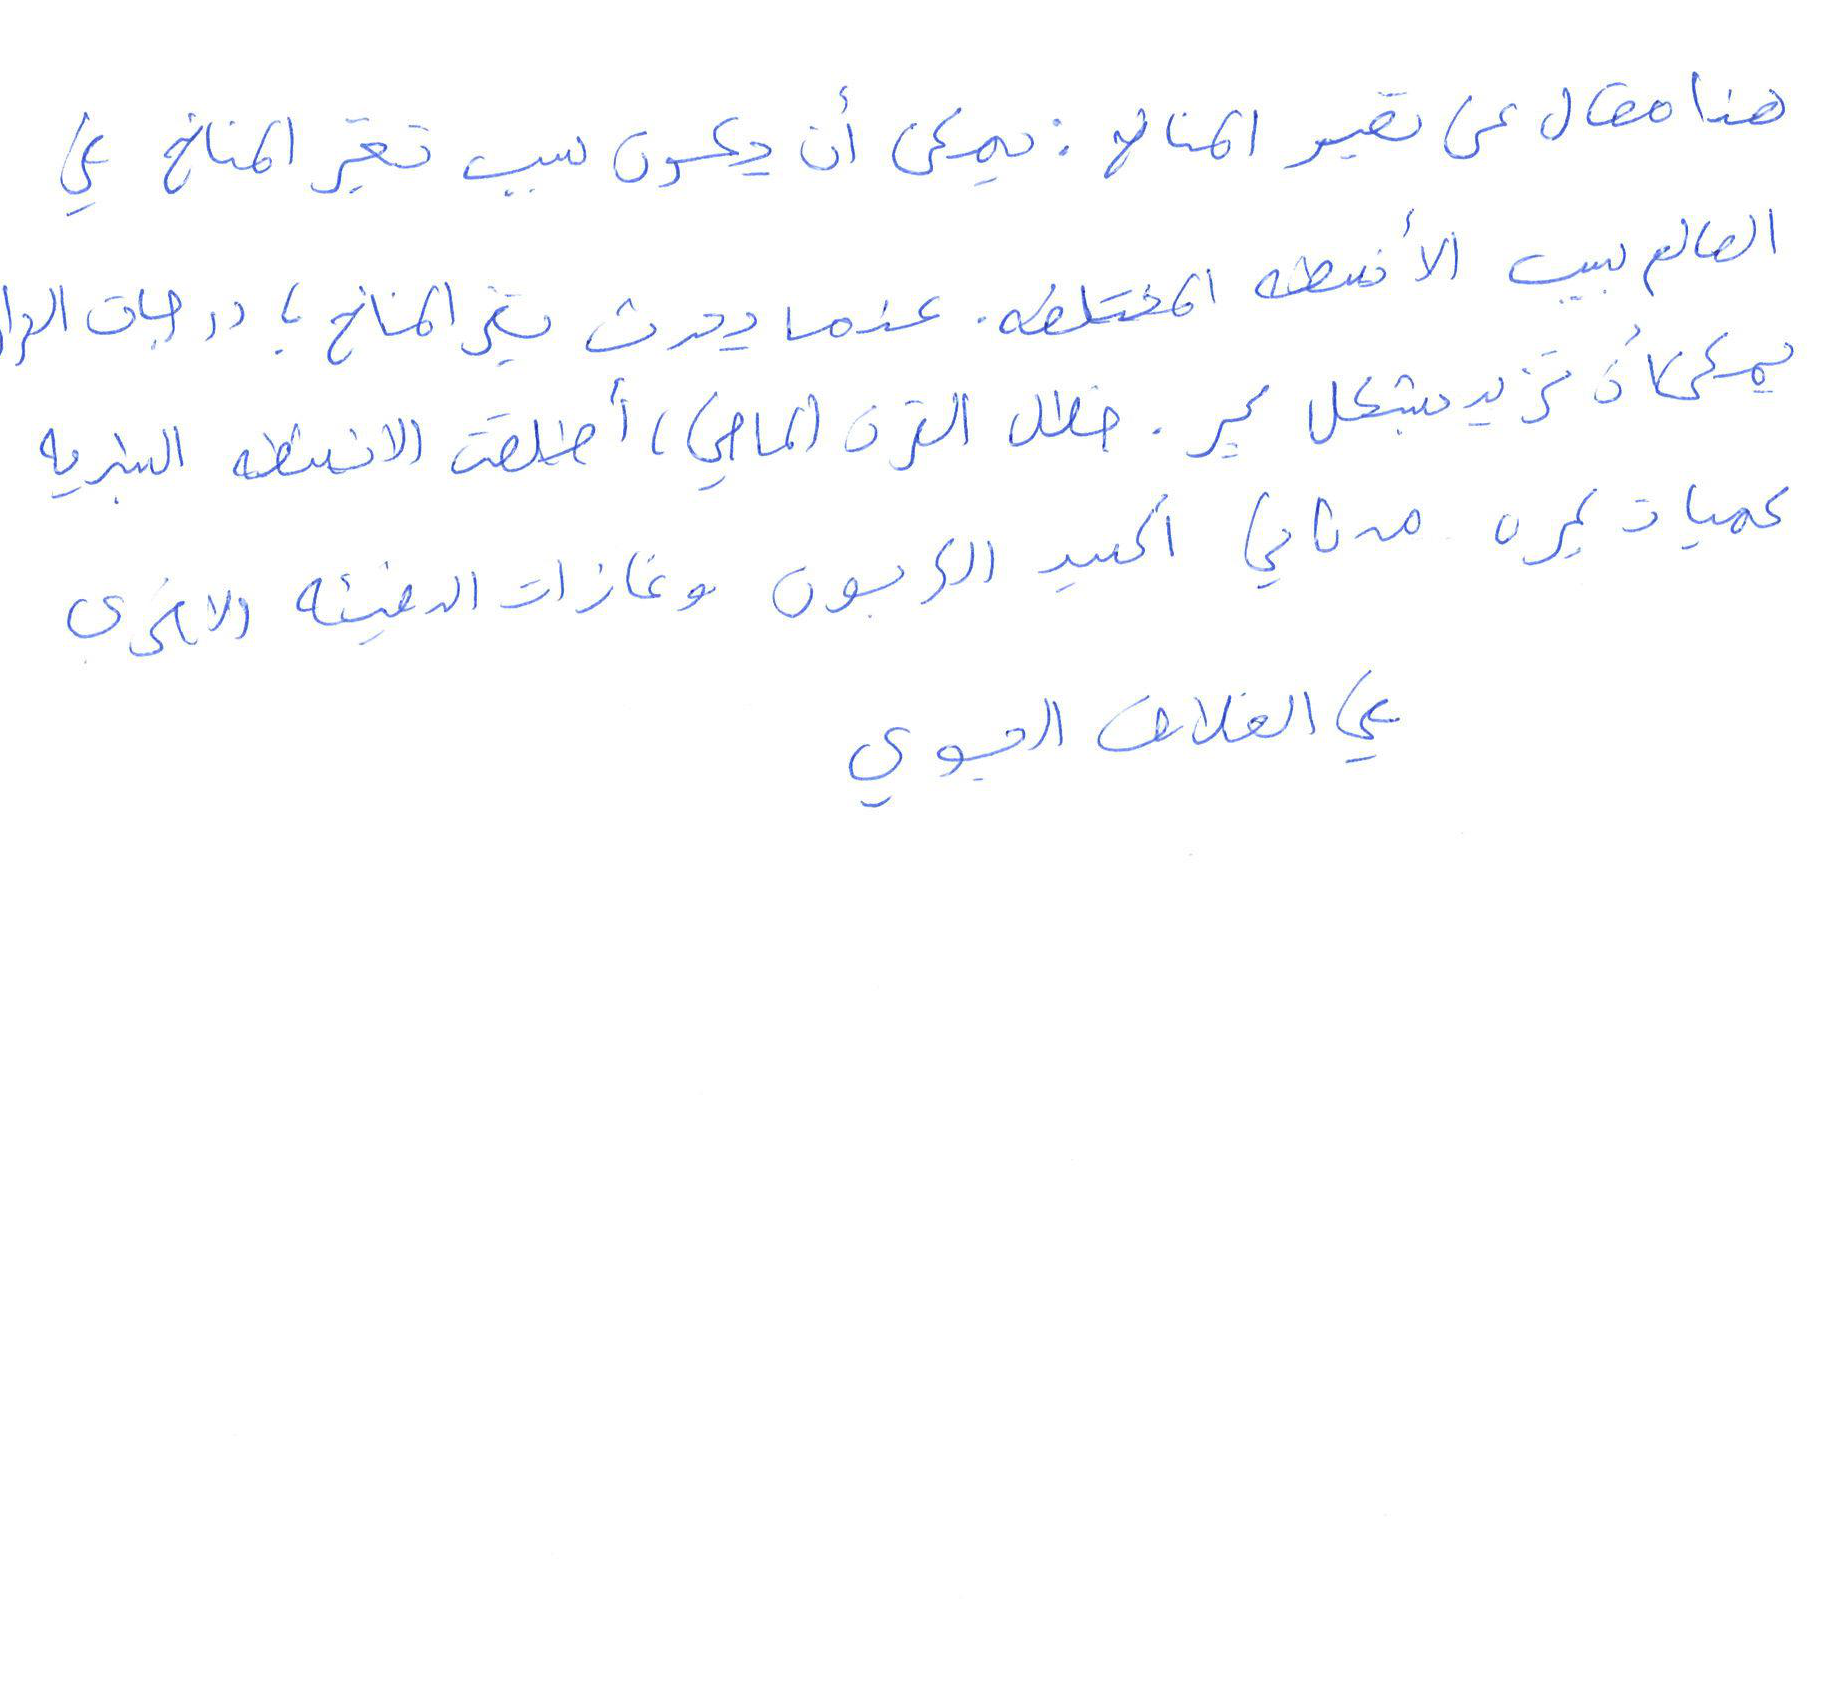 هنا مقال عن تغير المناخ: يمكن أن يكون سبب تغيّر المناخ في
العالم بسبب الأنشطه المختلفه. عندما يحدث تغير المناخ، درجات
يمكن أن تزيد بشكل كبير. خلال القرن الماضي، أطلقت الانشطه البشريه
كميات كبيره من ثاني أكسيد الكربون وغازات الدفيئه الاخرى
في الغلاف الجوي